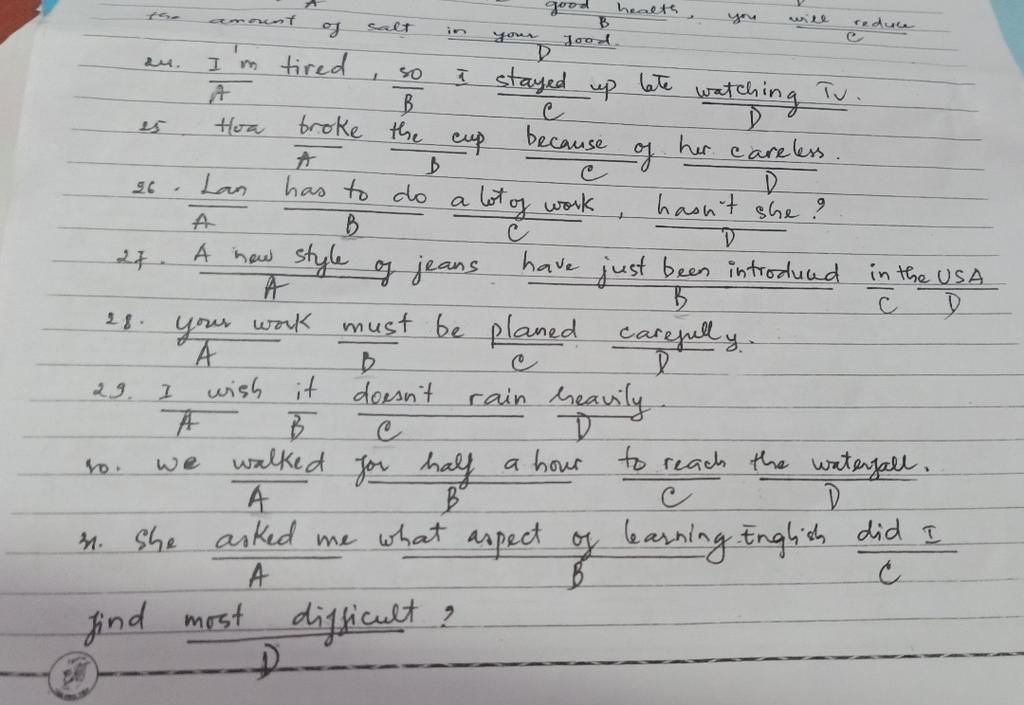 A
good health, you will reduce
B C
the amount of salt in your food.
D
24. I'm tired, so I stayed up late watching TV.
A B C D
25 Hoa broke the cup because of her careless.
A B C D
26. Lan has to do a lot of work, hasn't she?
A B C D
27. A new style of jeans have just been introduced in the USA
A B C D
28. your work must be planed carefully.
A B C D
29. I wish it doesn't rain heavily.
A B C D
30. we walked for half a hour to reach the waterfall.
A B C D
31. She asked me what aspect of learning English did I
A B C
find most difficult?
D